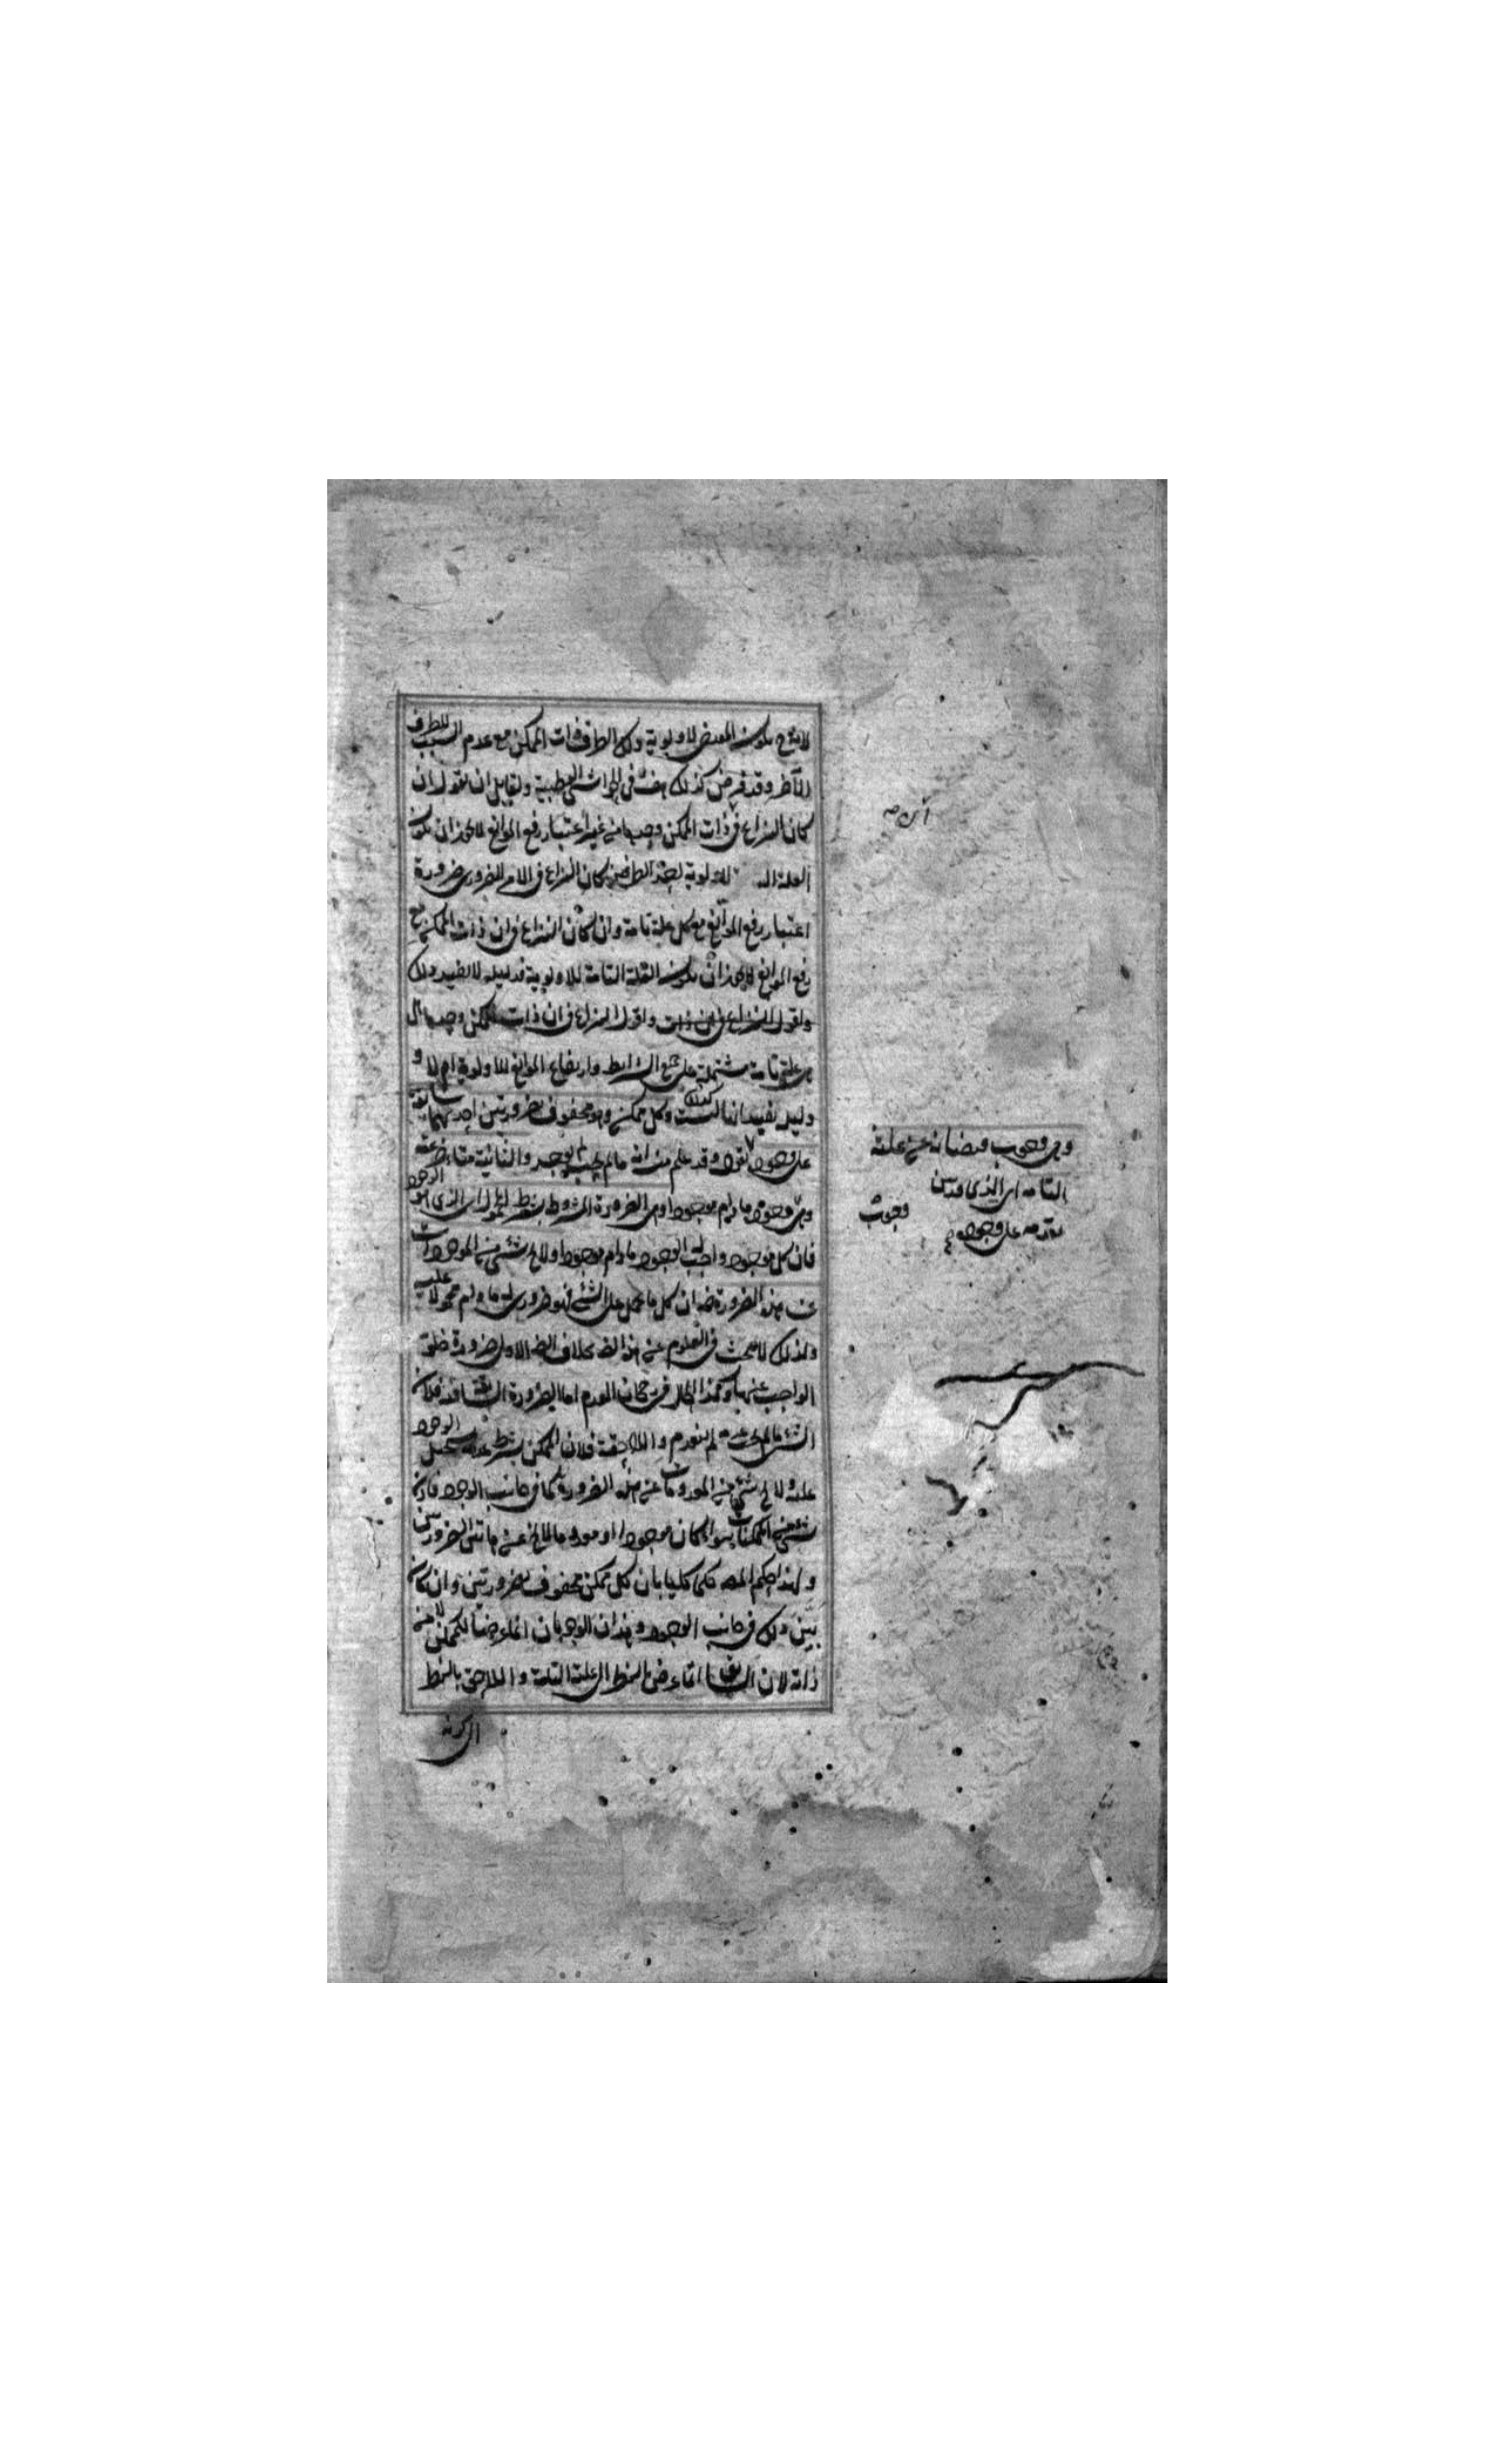 لانه ح يكون المقتضى لاولوية ذلك الطرف ذات الممكن مع عدم السبب للطرف
الآخر وقد فرض كذلك هف في الحواشي القطبية ولقايل ان يقول ان
كان النزاع في ذات الممكن وحدها من غير اعتبار رفع الموانع لا يجوز ان يكون
العلة للاولوية لاحد الطرفين كان النزاع في الامر الضروري ضرورة
اعتبار رفع الموانع مع كل علة تامة وان كان النزاع في ان ذات الممكن مع
رفع الموانع لا يجوز ان يكون العلة التامة للاولوية فدليله لا يفيد ذلك
واقول النزاع في ان ذات الممكن وحدها
هي علة تامة مشتملة على جميع الشرايط وارتفاع الموانع للاولوية ام لا و
دليله يفيد انها ليست كذلك وكل ممكن فهو محفوف بضرورتين احديهما سابقة
على وجوده وقد علم من انه ما لم يجب لم يوجد والثانية متاخرة عنه
وهي وجوده ما دام موجودا وهي الضرورة المشروطة بشرط المحمول الذي هو الوجود
فان كل موجود واجب له الوجود ما دام موجودا ولا يخ شيء من الموجودات
عن هذه الضرورة فان كل ما يحمل على الشيء فهو ضروري له ما دام محمولا عليه
ولذلك لا يبحث في العلوم عن هذا بخلاف الاولى ضرورة خلو
الواجب عنها وكذا الحال في جانب العدم اما الضرورة السابقة فلان
الشيء ما لم يجب عدمه لم ينعدم واللاحقة فلان الممكن بشرط عدمه يستحيل الوجود
عليه ولا يخ شيء من المعدومات عن هذه الضرورة كما في جانب الوجود فاذن
شيء من الممكنات سواء كان موجودا او معدوما لا يخ عن هاتين الضرورتين
ولهذا حكم المصـ حكما كليا بان كل ممكن محفوف بضرورتين وان كان
بين ذلك في جانب الوجود وهذان الوجوبان انما عرضا للممكن لا من
ذاته لان السابق انما عرض بالنظر الى العلة التامة واللاحق بالنظر
الى كونه
وهي وجوب فيضانه عن علته
التامة
وجوب
على وجوده